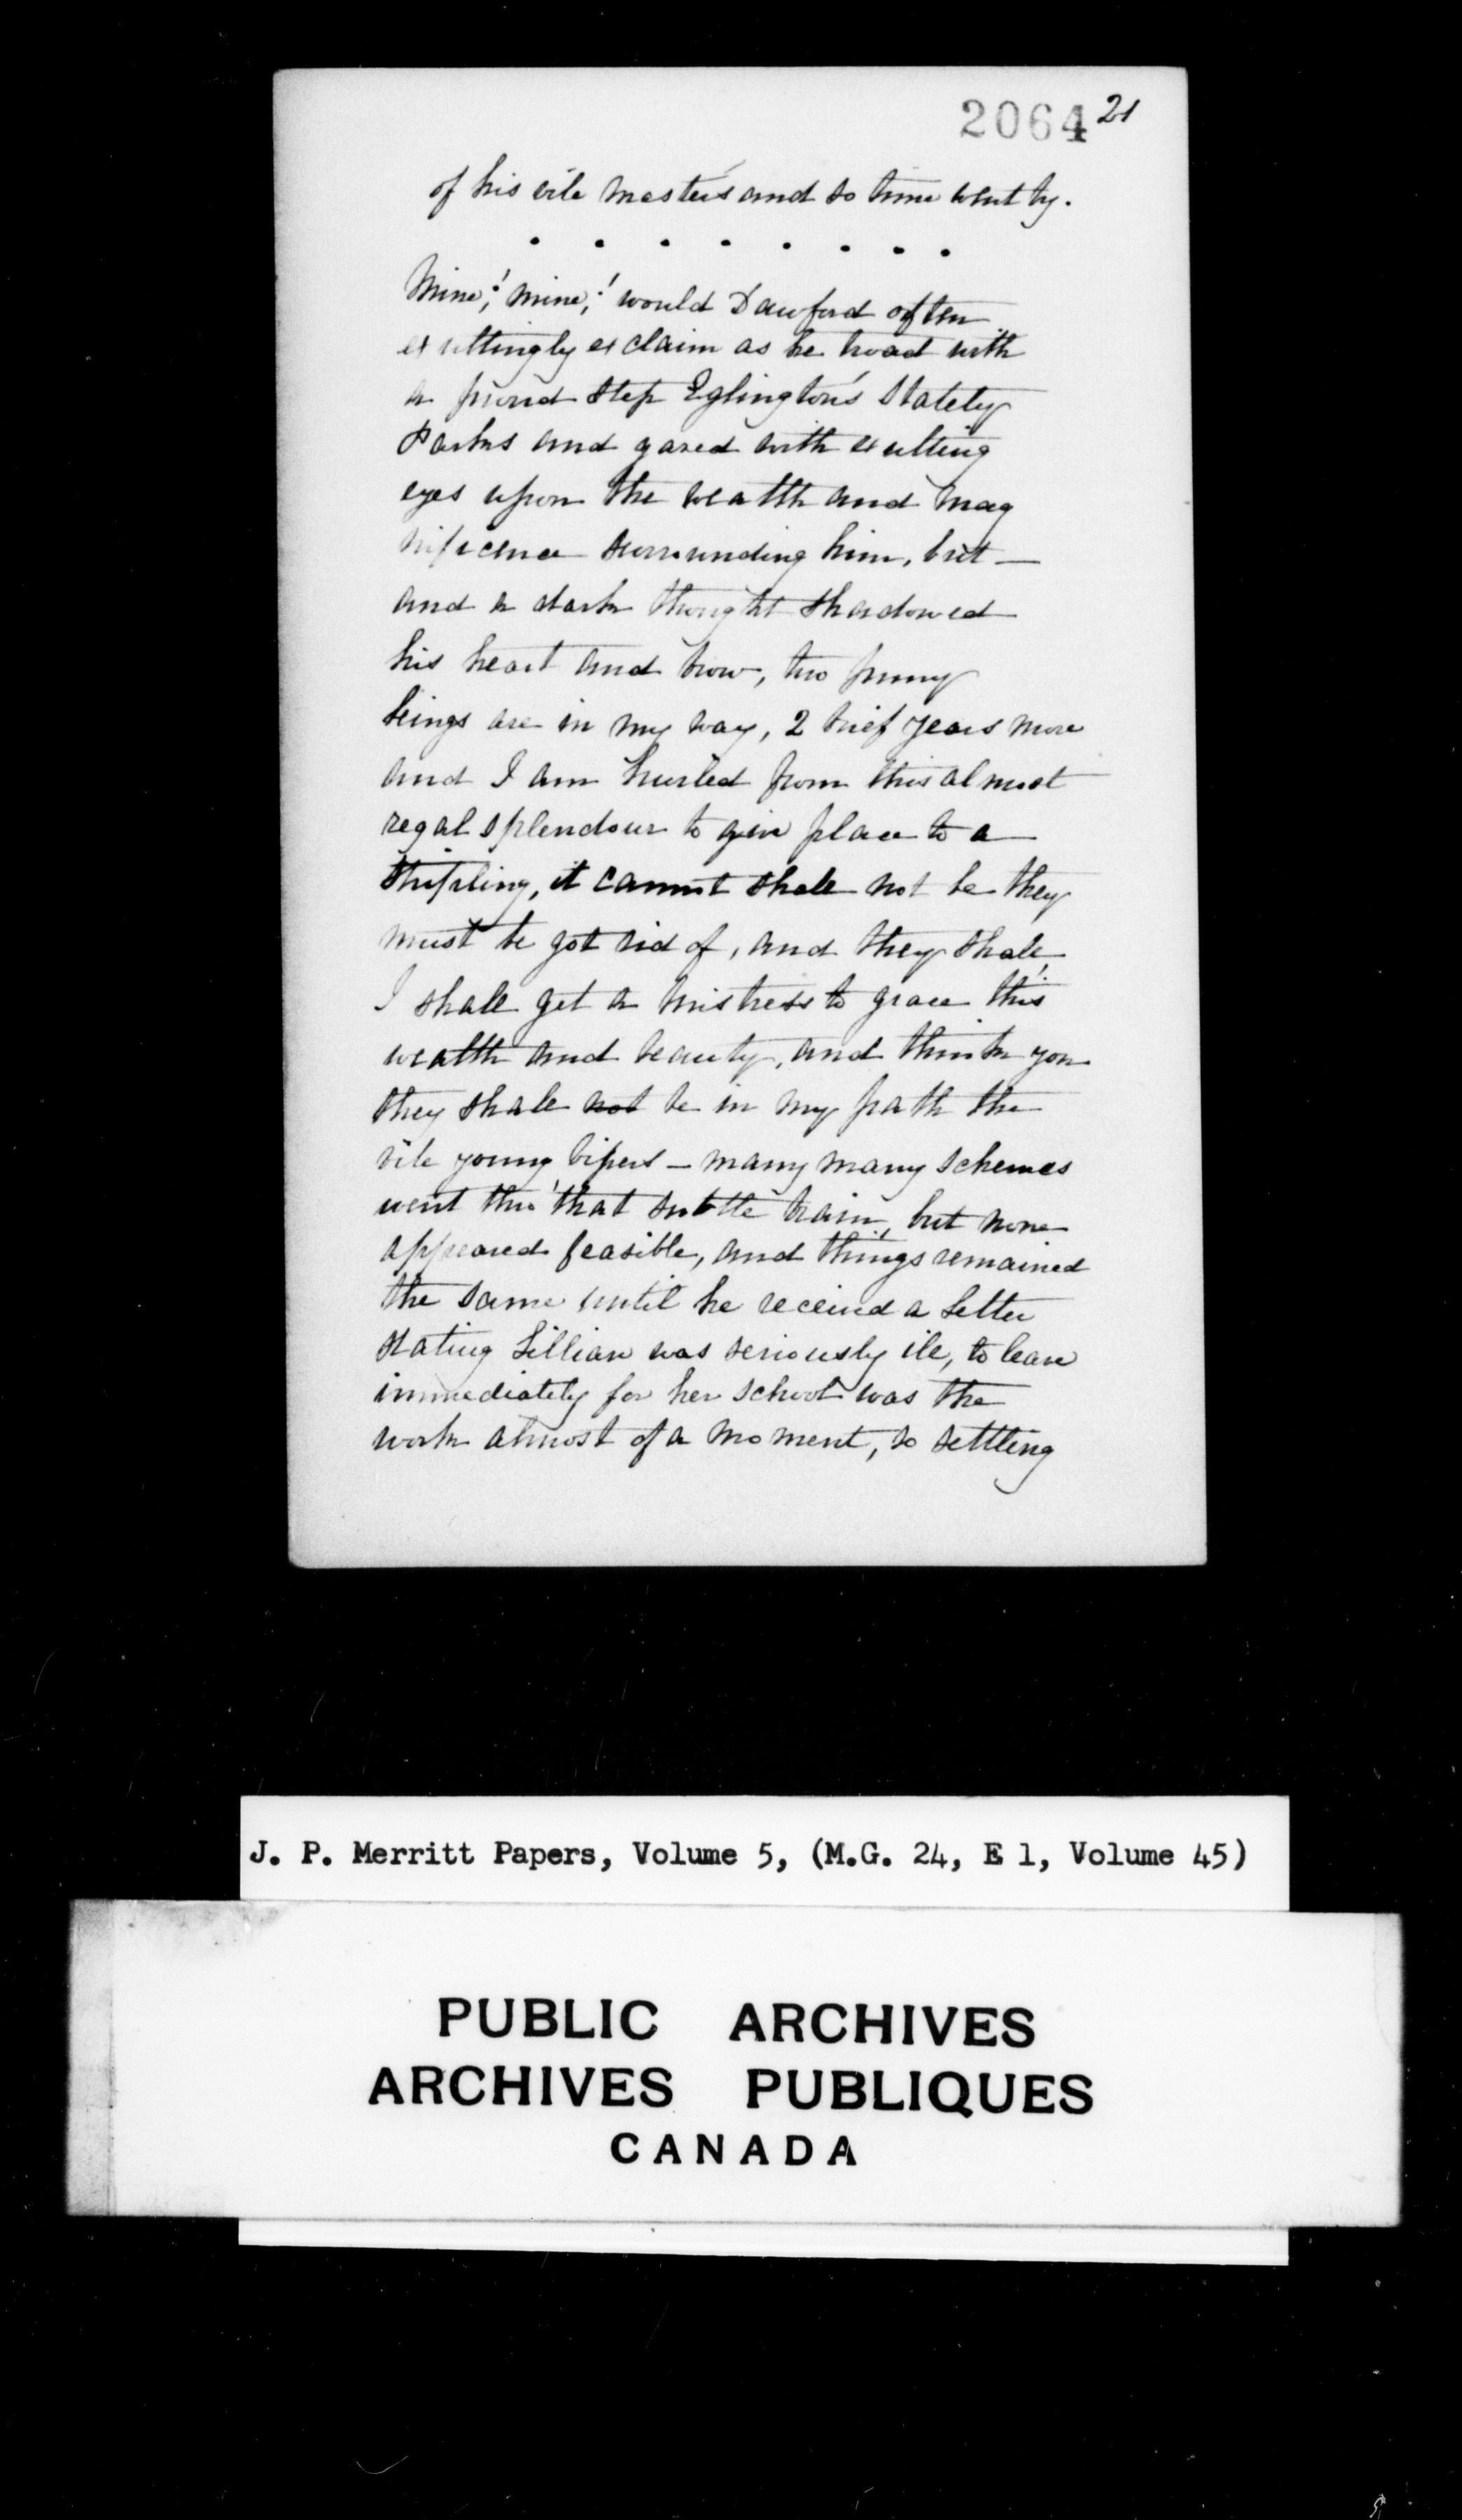 2064 21
of his vile master's and so time went by.
. . . . . . . .
Mine;! mine;! would Dawford often
exultingly exclaim as he troad with
a proud step Eglington's stately
Parks and gazed with exulting
eyes upon the wealth and mag
nificence surrounding him, but —
and a dark thought shadowed
his heart and brow, two puny
beings are in my way, 2 brief years more
and I am hurled from this almost
regal splendour to give place to a
stripling, it cannot shall not be they
must be got rid of, and they shall,
I shall get a mistress to grace this
wealth and beauty, and think you
they shall not be in my path the
vile young vipers — many many schemes
went thro' that subtle brain, but none
appeared feasible, and things remained
the same until he received a letter
stating Lillian was seriously ill, to leave
immediately for her school was the
work almost of a moment, so settling
J. P. Merritt Papers, Volume 5, (M.G. 24, E 1, Volume 45)
PUBLIC ARCHIVES
ARCHIVES PUBLIQUES
CANADA